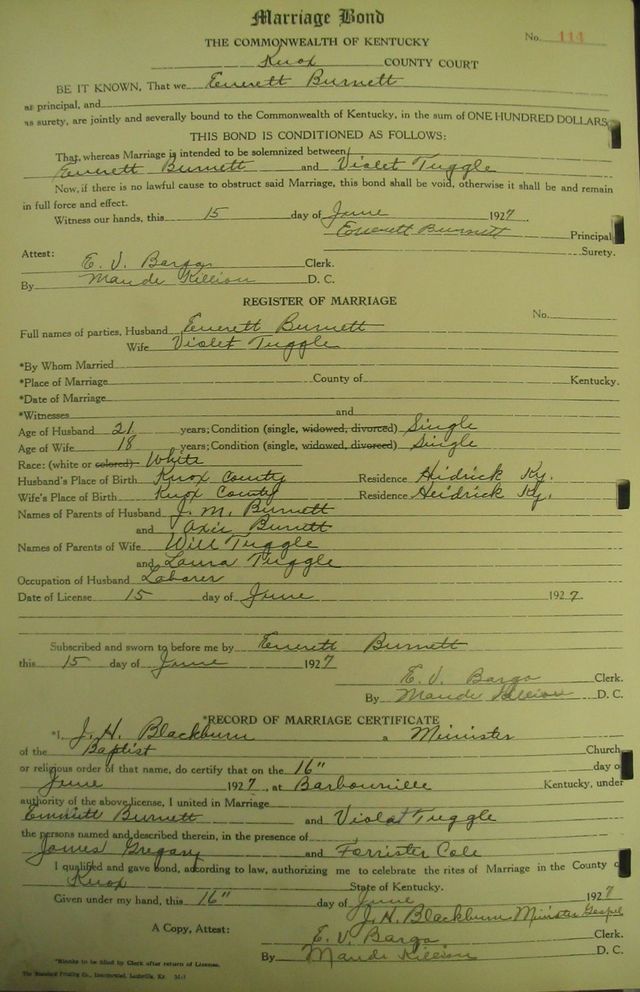 Marriage Bond
No. 114
THE COMMONWEALTH OF KENTUCKY
Knox COUNTY COURT
BE IT KNOWN, That we Everett Burnett
as principal, and
as surety, are jointly and severally bound to the Commonwealth of Kentucky, in the sum of ONE HUNDRED DOLLARS
THIS BOND IS CONDITIONED AS FOLLOWS:
That, whereas Marriage is intended to be solemnized between
Everett Burnett and Violet Tuggle
Now, if there is no lawful cause to obstruct said Marriage, this bond shall be void, otherwise it shall be and remain
in full force and effect.
Witness our hands, this 15 day of June 1927
Everett Burnett Principal
Surety.
Attest:
E. V. Bargo Clerk.
By Maude Killion D. C.
REGISTER OF MARRIAGE
No.
Full names of parties, Husband Everett Burnett
Wife Violet Tuggle
*By Whom Married
*Place of Marriage County of Kentucky.
*Date of Marriage
*Witnesses and
Age of Husband 21 years; Condition (single, widowed, divorced) Single
Age of Wife 18 years; Condition (single, widowed, divorced) Single
Race: (white or colored) White
Husband's Place of Birth Knox County Residence Heidrick Ky.
Wife's Place of Birth Knox County Residence Heidrick Ky.
Names of Parents of Husband J. M. Burnett
and Axie Burnett
Names of Parents of Wife Will Tuggle
and Laura Tuggle
Occupation of Husband Laborer
Date of License 15 day of June 1927
Subscribed and sworn to before me by Everett Burnett
this 15 day of June 1927
E. V. Bargo Clerk.
By Maude Killion D. C.
*RECORD OF MARRIAGE CERTIFICATE
*I, J. H. Blackburn a Minister
of the Baptist Church
or religious order of that name, do certify that on the 16" day o
June 1927, at Barbourville Kentucky, under
authority of the above license, I united in Marriage
Emmitt Burnett and Violat Tuggle
the persons named and described therein, in the presence of
James Gregary and Forrister Cole
I qualified and gave bond, according to law, authorizing me to celebrate the rites of Marriage in the County o
Knox State of Kentucky.
Given under my hand, this 16" day of June 1927
J. H. Blackburn Minister Gospel
A Copy, Attest: E. V. Bargo Clerk.
By Maude Killion D. C.
*Blanks to be filled by Clerk after return of License.
The Standard Printing Co., Incorporated, Louisville, Ky.